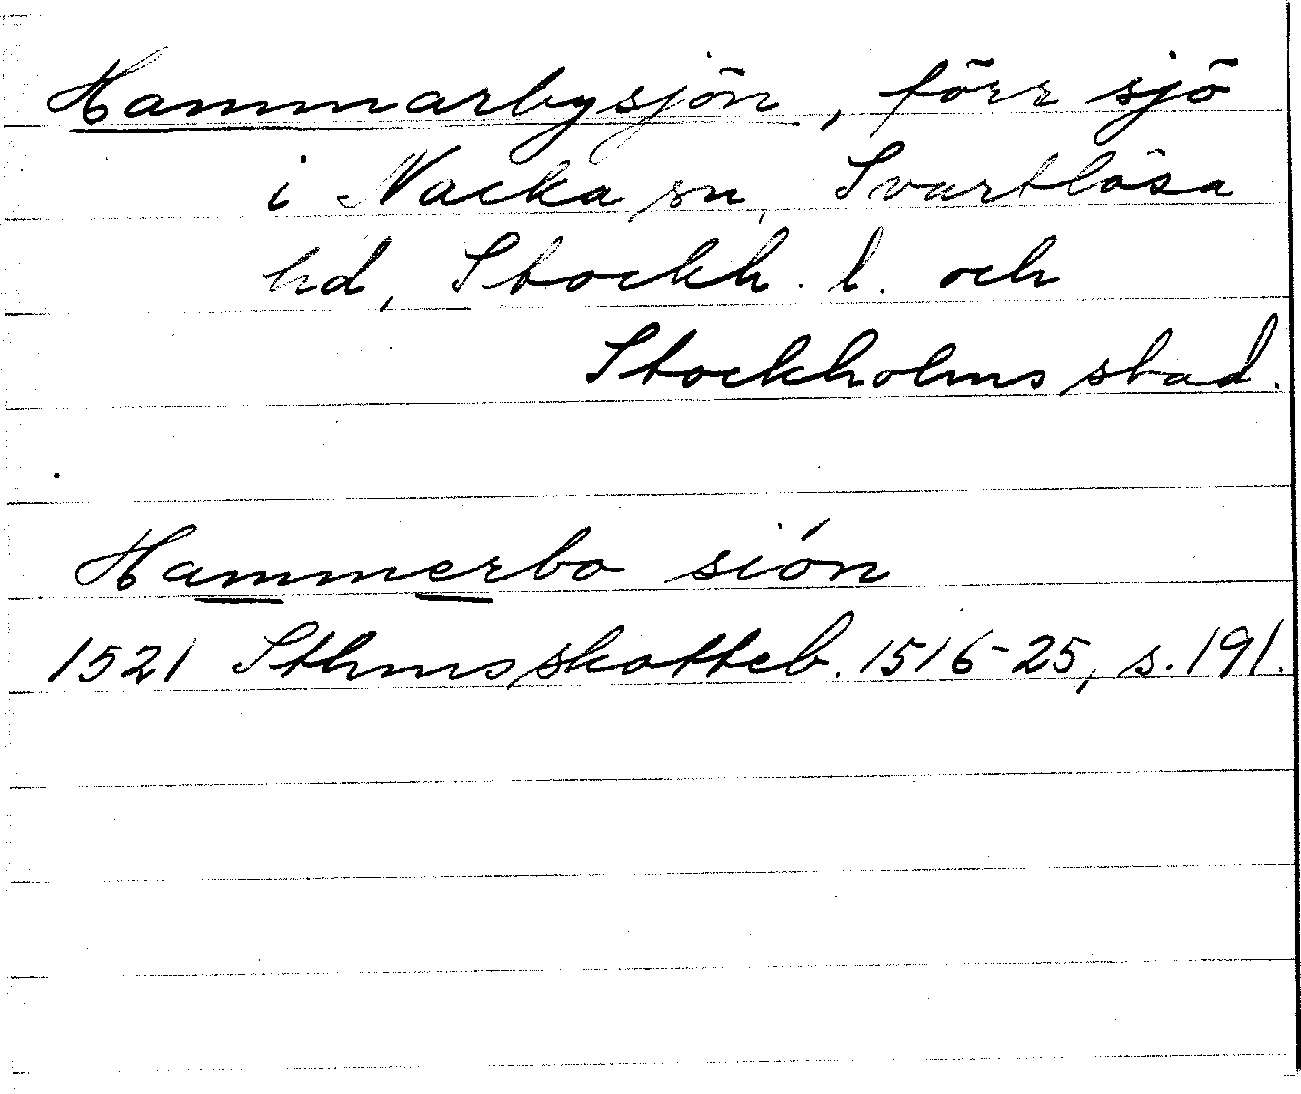 Hammarbysjön, förr sjö
i Nacka sn, Svartlösa
hd, Stockh. l. och
Stockholms stad.
Hammerbo siön
1521 Sthms skotteb. 1516-25, s. 191.